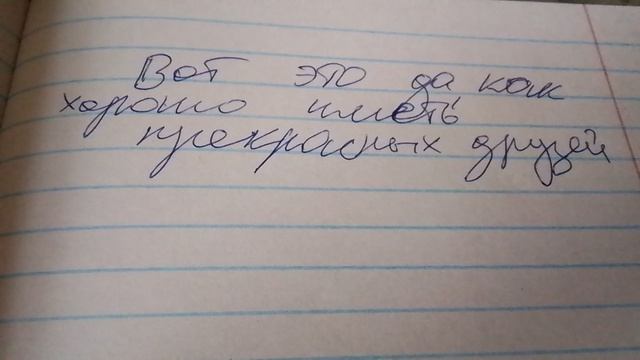 Вот это да как
хорошо иметь
прекрасных друзей